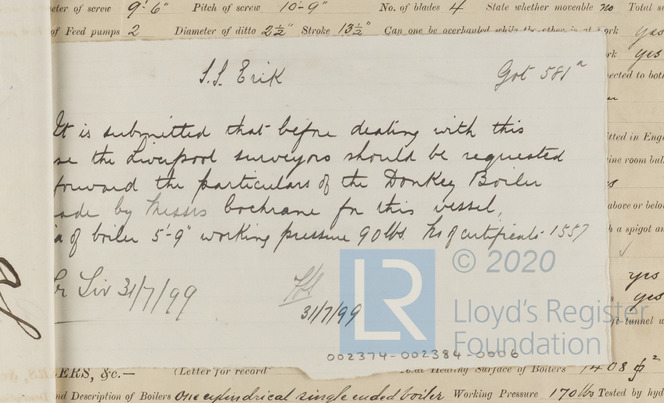 eter of screw 9'-6" Pitch of screw 10-9" No. of blades 4 State whether moveable no Total su
of Feed pumps 2 Diameter of ditto 2½" Stroke 13½" Can one be overhauled while the other is at work yes
S.S. Erik Got 581ª
It is submitted that before dealing with this
se the Liverpool surveyors should be requested
forward the particulars of the Donkey Boiler
ade by Messrs Cochrane for this vessel,
a of boiler 5'-9" working pressure 90 lbs No of certificate 1557
Liv 31/7/99
31/7/99
LR © 2020
Lloyd's Register
Foundation
002374-002384-0006
ERS, &c.— (Letter for record
Total Heating Surface of Boilers 1408
nd Description of Boilers One cylindrical single ended boiler Working Pressure 170 lbs Tested by hyd